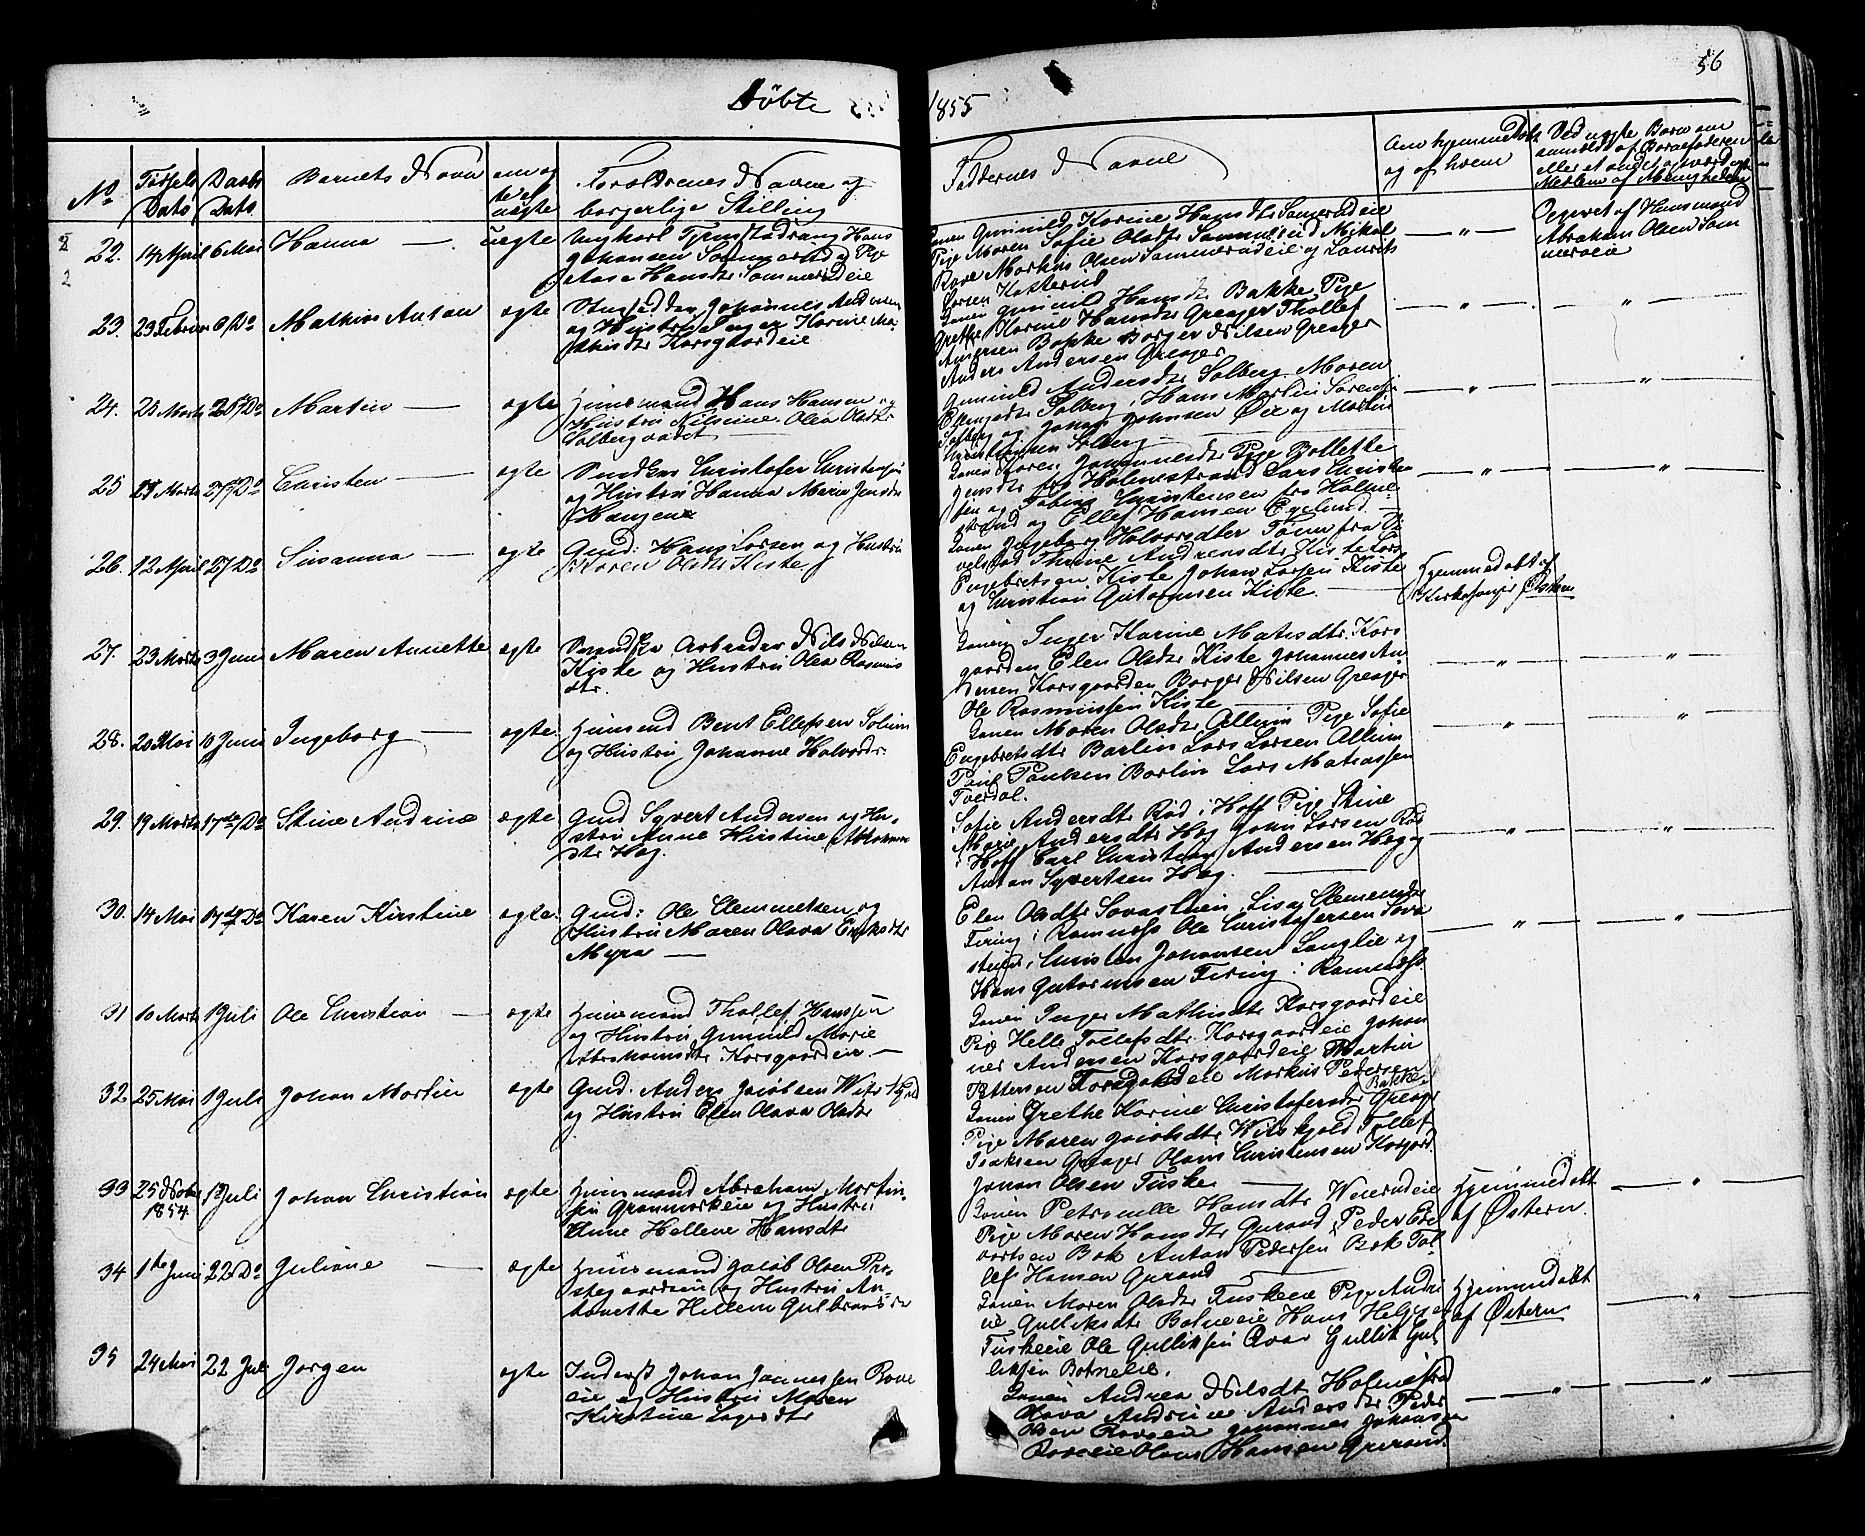 Døbte 1855
56
No
Fødsels
Dato
Daabs
Dato
Barnets Navn
om æg
te el
uægte
Forældrenes Navne og
borgerlige Stilling
Faddernes Navne
Om hjemmedøbt
og af hvem
Ved uægte Børn om
anmeldt af Barnefaderen
eller et andet
Medlem af Menigheden
22. 14 April 6 Mai Hanna — uægte
Johansen Sommerud og Pige
Hansdtr Sommerudeie
Gunnild Karine Hansdtr Sommerudeie
Pige Maren Sofie Olsdtr
Markus Olsen Sommerudeie og Laurits
Larsen
— " —
Opgivet af Huusmand
Abraham Olsen Som
merudeie
23. 23 Februar 6 Do Mathias Anton ægte
Johannes Andersen
og Hustru Inger Karine Ma
thisdtr Korsgaardeie
Konen Gunnild Hansdtr Bakke Pige
Grethe Karine Hansdtr Greager Thollef
Andersen Bakke Borger Nilsen Greager
Anders Andersen Greager
— " — "
24. 25 Marts 28 Do Martin — ægte
Huusmand Hans Hansen og
Hustru Nilsine Olea Olsdtr
Solberg
Gunnild Andersdtr Solberg Maren
Solberg, Hans Martin Sørensen
Solberg og Johan Johnsen Øre og Martin
Christiansen Solberg —
— " — "
25 Marts 27 Do Christen — ægte
Christofer Christensen
og Hustru Hanna Maria Jensdtr
Haugene
Konen Karen Johannesdtr Pige Bollette
Jensdtr fra Holmestrand Lars Christen
sen og Tobias Christensen fra Holme
strand og Ellef Hansen Egelund —
— " — "
26. 12 April 27 Do Susanna — ægte
Gmd: Hans Larsen og Hustru
Karen Olsdtr Kiste
Konen Ingeborg Halvorsdtter
Thrine Andreasdtr Kiste Lars
Engebretsen Kiste Johan Larsen Kiste
og Christian Guttormsen Kiste. —
Hjemmedøbt af
Kirkesanger Østern
27. 23 Marts 3 Juni Maren Annette ægte
Arbeider Nils Nilsen
Kiste og Hustru Olea Rasmus
dtr.
Konen Inger Karine Mathisdtr. Kors
gaarden Elen Olsdtr Kiste Johannes An
dersen Korsgaarden Borger Nilsen Greager
Ole Rasmussen Kiste —
— " — "
28. 20 Mai 10 Juni Ingeborg — ægte.
Huusmd Bent Ellefsen Solum
og Hustru Johanne Halvorsdtr.
Konen Maren Olsdtr Allum Pige Sofie
Engebretsdtr Barlin Lars Larsen Allum
Poul Paulsen Barlin Lars Mathiassen
Tverdal.
— " — "
29. 19 Marts 17de Do Stine Andrine ægte
Gmd Syvert Andersen og Hu
stru Anne Kirstine Abraham
dtr Hag.
Sofie Andersdtr Rød i Hoff Pige Stine
Marie Andersdtr Hag John Larsen Rød
i Hoff Carl Christian Andersen Hag og
Anton Syvertsen Hag. —
— " — "
30. 14 Mai 17de Do Karen Kirstine ægte.
Gmd: Ole Clemmetsen og
Hustru Maren Olava Eriksdtr
Myra —
Elen Olsdtr Lisa Clemendsdtr
Firing i Ramnæs Ole Christofersen
Christen Johansen Langlie og
Hans Guttormsen Firing i Ramnæs
— " — "
31 10 Marts 1 Juli Ole Christian — ægte
Huusmand Thollef Hanssen
og Hustru Gunnild Marie
Abrahamsdtr Korsgaardeie. —
Konen Inger Mathisdtr Korsgaardeie
Pige Helle Tollefsdtr Korsgaardeie Johan
nes Andersen Korsgaardeie Martin
Pettersen Korsgaardeie Markus Pedersen
Bakke
32. 25 Mai 1 Juli Johan Martin ægte
Gmd. Anders Jacobsen
og Hustru Elen Olava Olsdtr
Konen Grethe Karine Christofersdtr Greager
Pige Maren Jacobsdtr Tollef
Isaksen Greager Olaus Christensen
Johan Olsen Tuske —
33 25 Novbr
1854 1 Juli Johan Christian ægte
Huusmand Abraham Martin
sen Grønmarkeie og Hustru
Anne Hellene Hansdtr
Konen Petronille Hansdtr
Pige Maren Hansdtr Gurand, Peder
Bok Anton Pedersen Bok Tol
lef Hansen Gurand —
Hjemmedøbt
af Østern.
— " —
34 1ste Juni 22 Do Juliane — ægte
Huusmand Jacob Olsen Pre
stegaardseie og Hustru An
tonette Hellene Gulbrandsdtr
Konen Maren Olsdtr Tuskeeie Pige Andri
ne Gulliksdtr Botneeie Hans Helgesen
Tuskeeie Ole Gulliksen Gullik Gul
liksen Botneeie.
Hjemmedøbt
af Østern
— " —
35 24 Mai 22 Juli Jørgen ægte
Inderst Johan Johannessen Rove
eie og Hustru Maren
Kirstine Lagesdtr
Konen Andrea Nilsdtr
Olava Andrine Andersdtr Peder
Olsen Roveeie Johannes Johansen
Roveeie Olaus Hansen Gurand.
— " — "